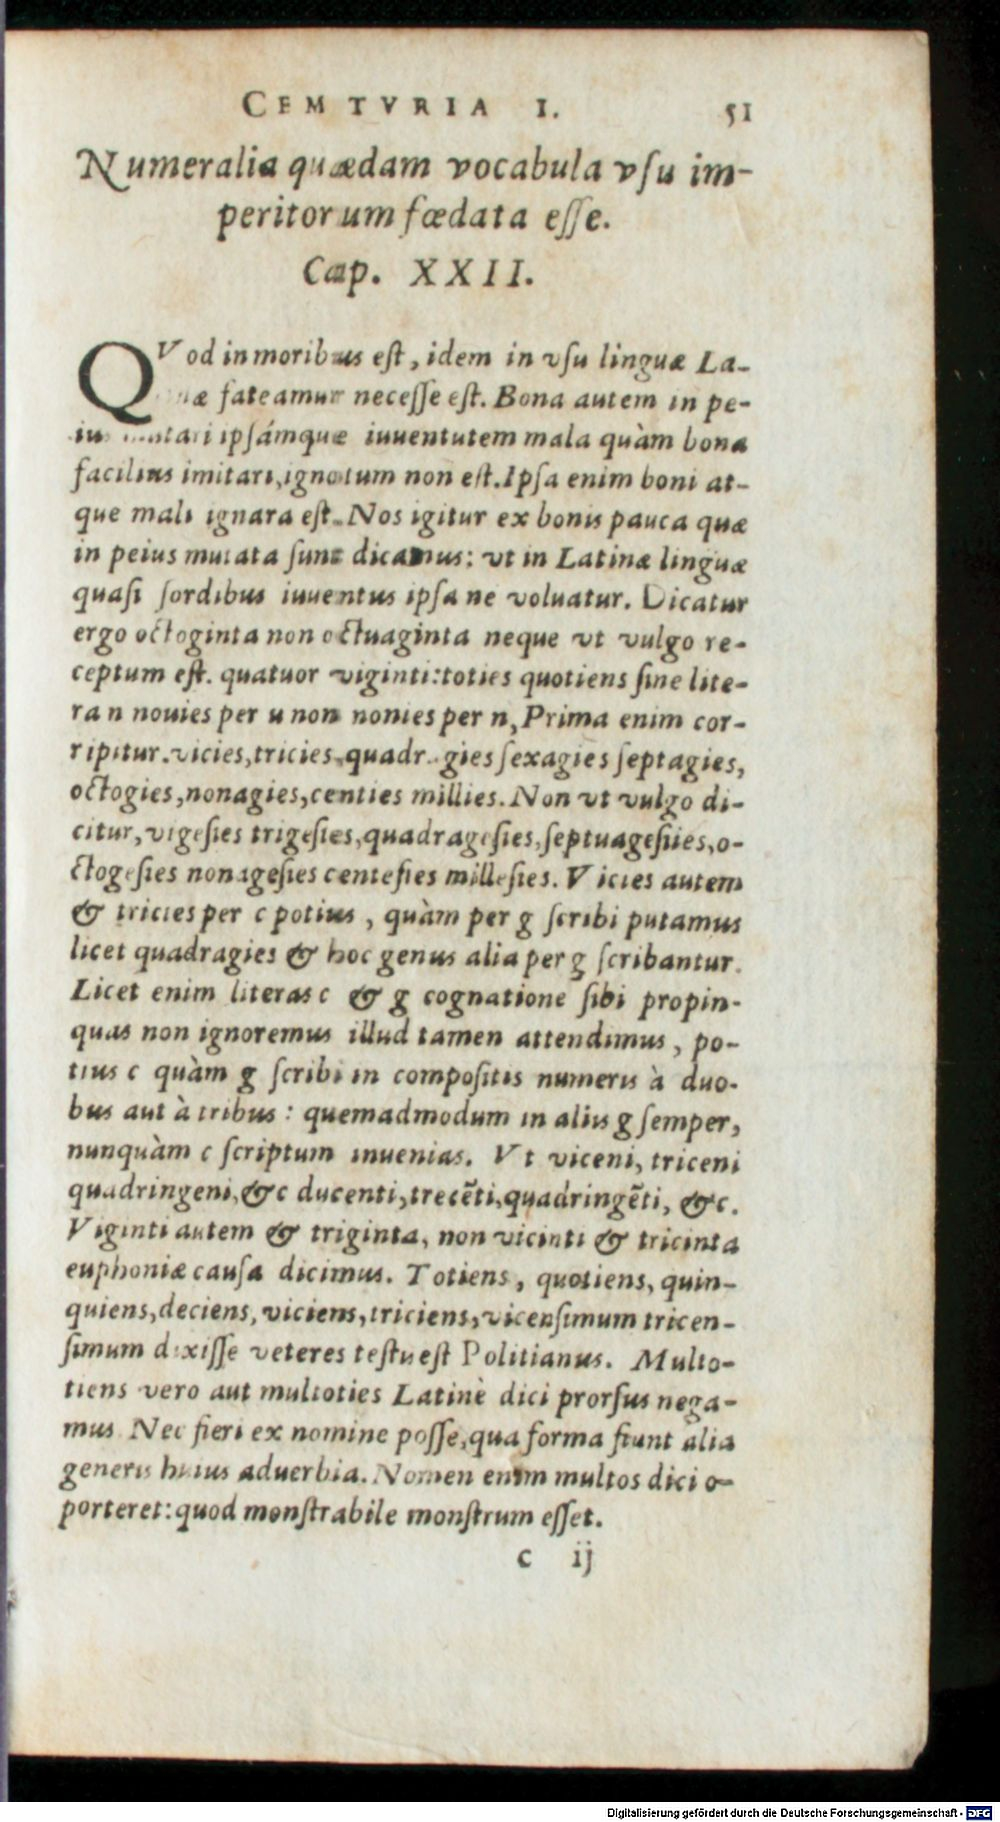 CEMTVRIA I. 51
Numeralia quædam vocabula vſu im-
peritorum fœdata eſſe.
Cap. XXII.
QVod in moribus eſt, idem in vſu linguæ La-
fateamur neceſſe eſt. Bona autem in pe-
ius mutari ipſámque iuuentutem mala quàm bona
facilius imitari, ignotum non eſt. Ipſa enim boni at-
que mali ignara eſt. Nos igitur ex bonis pauca quæ
in peius mutata ſunt dicamus: vt in Latinæ linguæ
quaſi ſordibus iuuentus ipſa ne voluatur. Dicatur
ergo octoginta non octuaginta neque vt vulgo re-
ceptum eſt. quatuor viginti: toties quotiens ſine lite-
ra n nouies per u non nonies per n, Prima enim cor-
ripitur. vicies, tricies, quadragies ſexagies ſeptagies,
octogies, nonagies, centies millies. Non vt vulgo di-
citur, vigeſies trigeſies, quadrageſies, ſeptuageſiies, o-
ctogeſies nonageſies centeſies milleſies. Vicies autem
& tricies per c potius, quàm per g ſcribi putamus
licet quadragies & hoc genus alia per g ſcribantur.
Licet enim literas c & g cognatione ſibi propin-
quas non ignoremus illud tamen attendimus, po-
tius c quàm g ſcribi in compoſitis numeris à duo-
bus aut à tribus: quemadmodum in aliis g ſemper,
nunquàm c ſcriptum inuenias. Vt viceni, triceni
quadringeni, &c ducenti, trecẽti, quadringẽti, &c.
Viginti autem & triginta, non vicinti & tricinta
euphoniæ cauſa dicimus. Totiens, quotiens, quin-
quiens, deciens, viciens, triciens, vicenſimum tricen-
ſimum dixiſſe veteres teſtu eſt Politianus. Multo-
tiens vero aut multoties Latinè dici prorſus nega-
mus Nec fieri ex nomine poſſe, qua forma fiunt alia
generis huius aduerbia. Nomen enim multos dici o-
porteret: quod monſtrabile monſtrum eſſet.
c ij
Digitalisierung gefördert durch die Deutsche Forschungsgemeinschaft - DFG